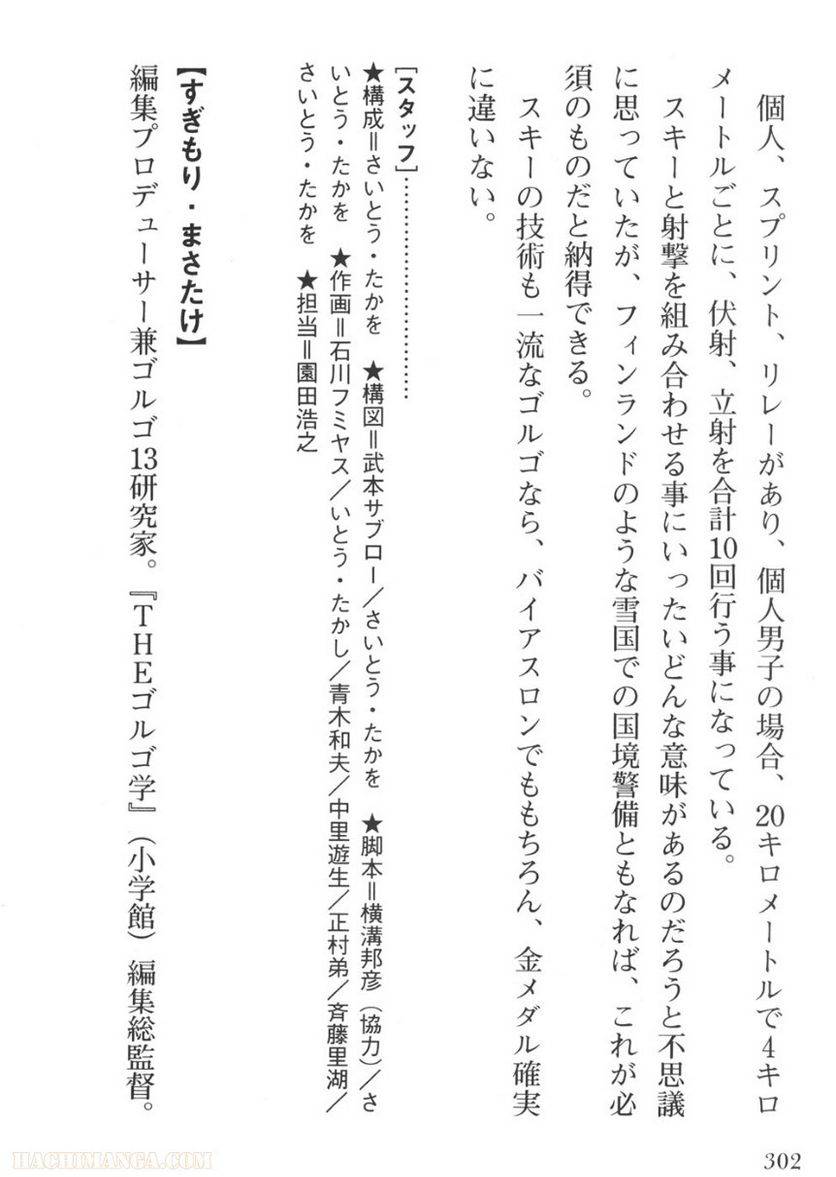 個人、スプリント、リレーがあり、個人男子の場合、20キロメートルで4キロ
メートルごとに、伏射、立射を合計10回行う事になっている。
スキーと射撃を組み合わせる事にいったいどんな意味があるのだろうと不思議
に思っていたが、フィンランドのような雪国での国境警備ともなれば、これが必
須のものだと納得できる。
スキーの技術も一流なゴルゴなら、バイアスロンでももちろん、金メダル確実
に違いない。
[スタッフ]………………………………
★構成＝さいとう・たかを ★構図＝武本サブロー/さいとう・たかを ★脚本＝横溝邦彦(協力)/さ
いとう・たかを ★作画＝石川フミヤス/いとう・たかし/青木和夫/中里遊生/正村弟/斉藤里湖/
さいとう・たかを ★担当＝園田浩之
【すぎもり・まさたけ】
編集プロデューサー兼ゴルゴ13研究家。『THEゴルゴ学』(小学館)編集総監督。
302
HACHIMANGA.COM